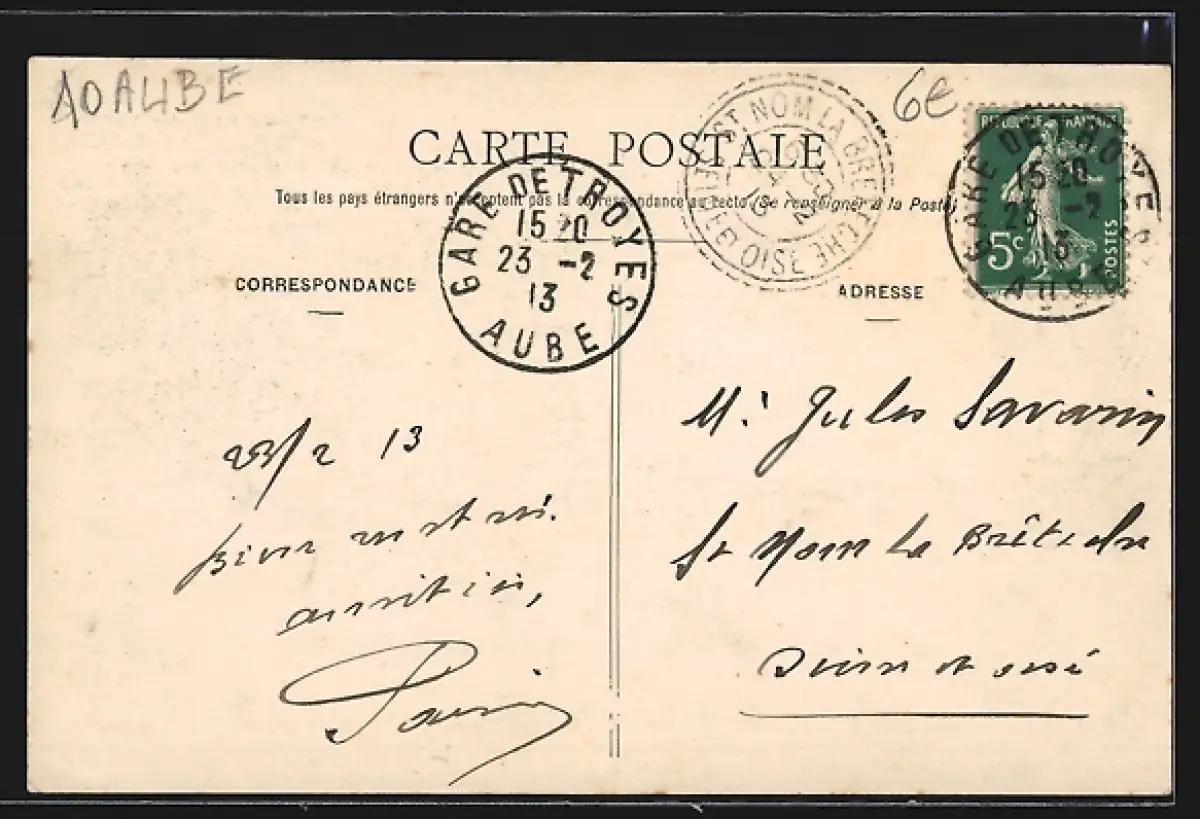 10 AUBE
6€
CARTE POSTALE
Tous les pays étrangers n'acceptent pas la correspondance au recto (Se renseigner à la Poste)
CORRESPONDANCE
ADRESSE
GARE DE TROYES
15 20
23 -2
13
AUBE
ST NOM LA BRETECHE
SEINE ET OISE
REPUBLIQUE FRANÇAISE
5c
POSTES
GARE DE TROYES
15 20
23 -2
13
AUBE
23/2 13
Bien
amitiés,
Mr Jules Savarin
St Nom la Brêteche
Seine et Oise